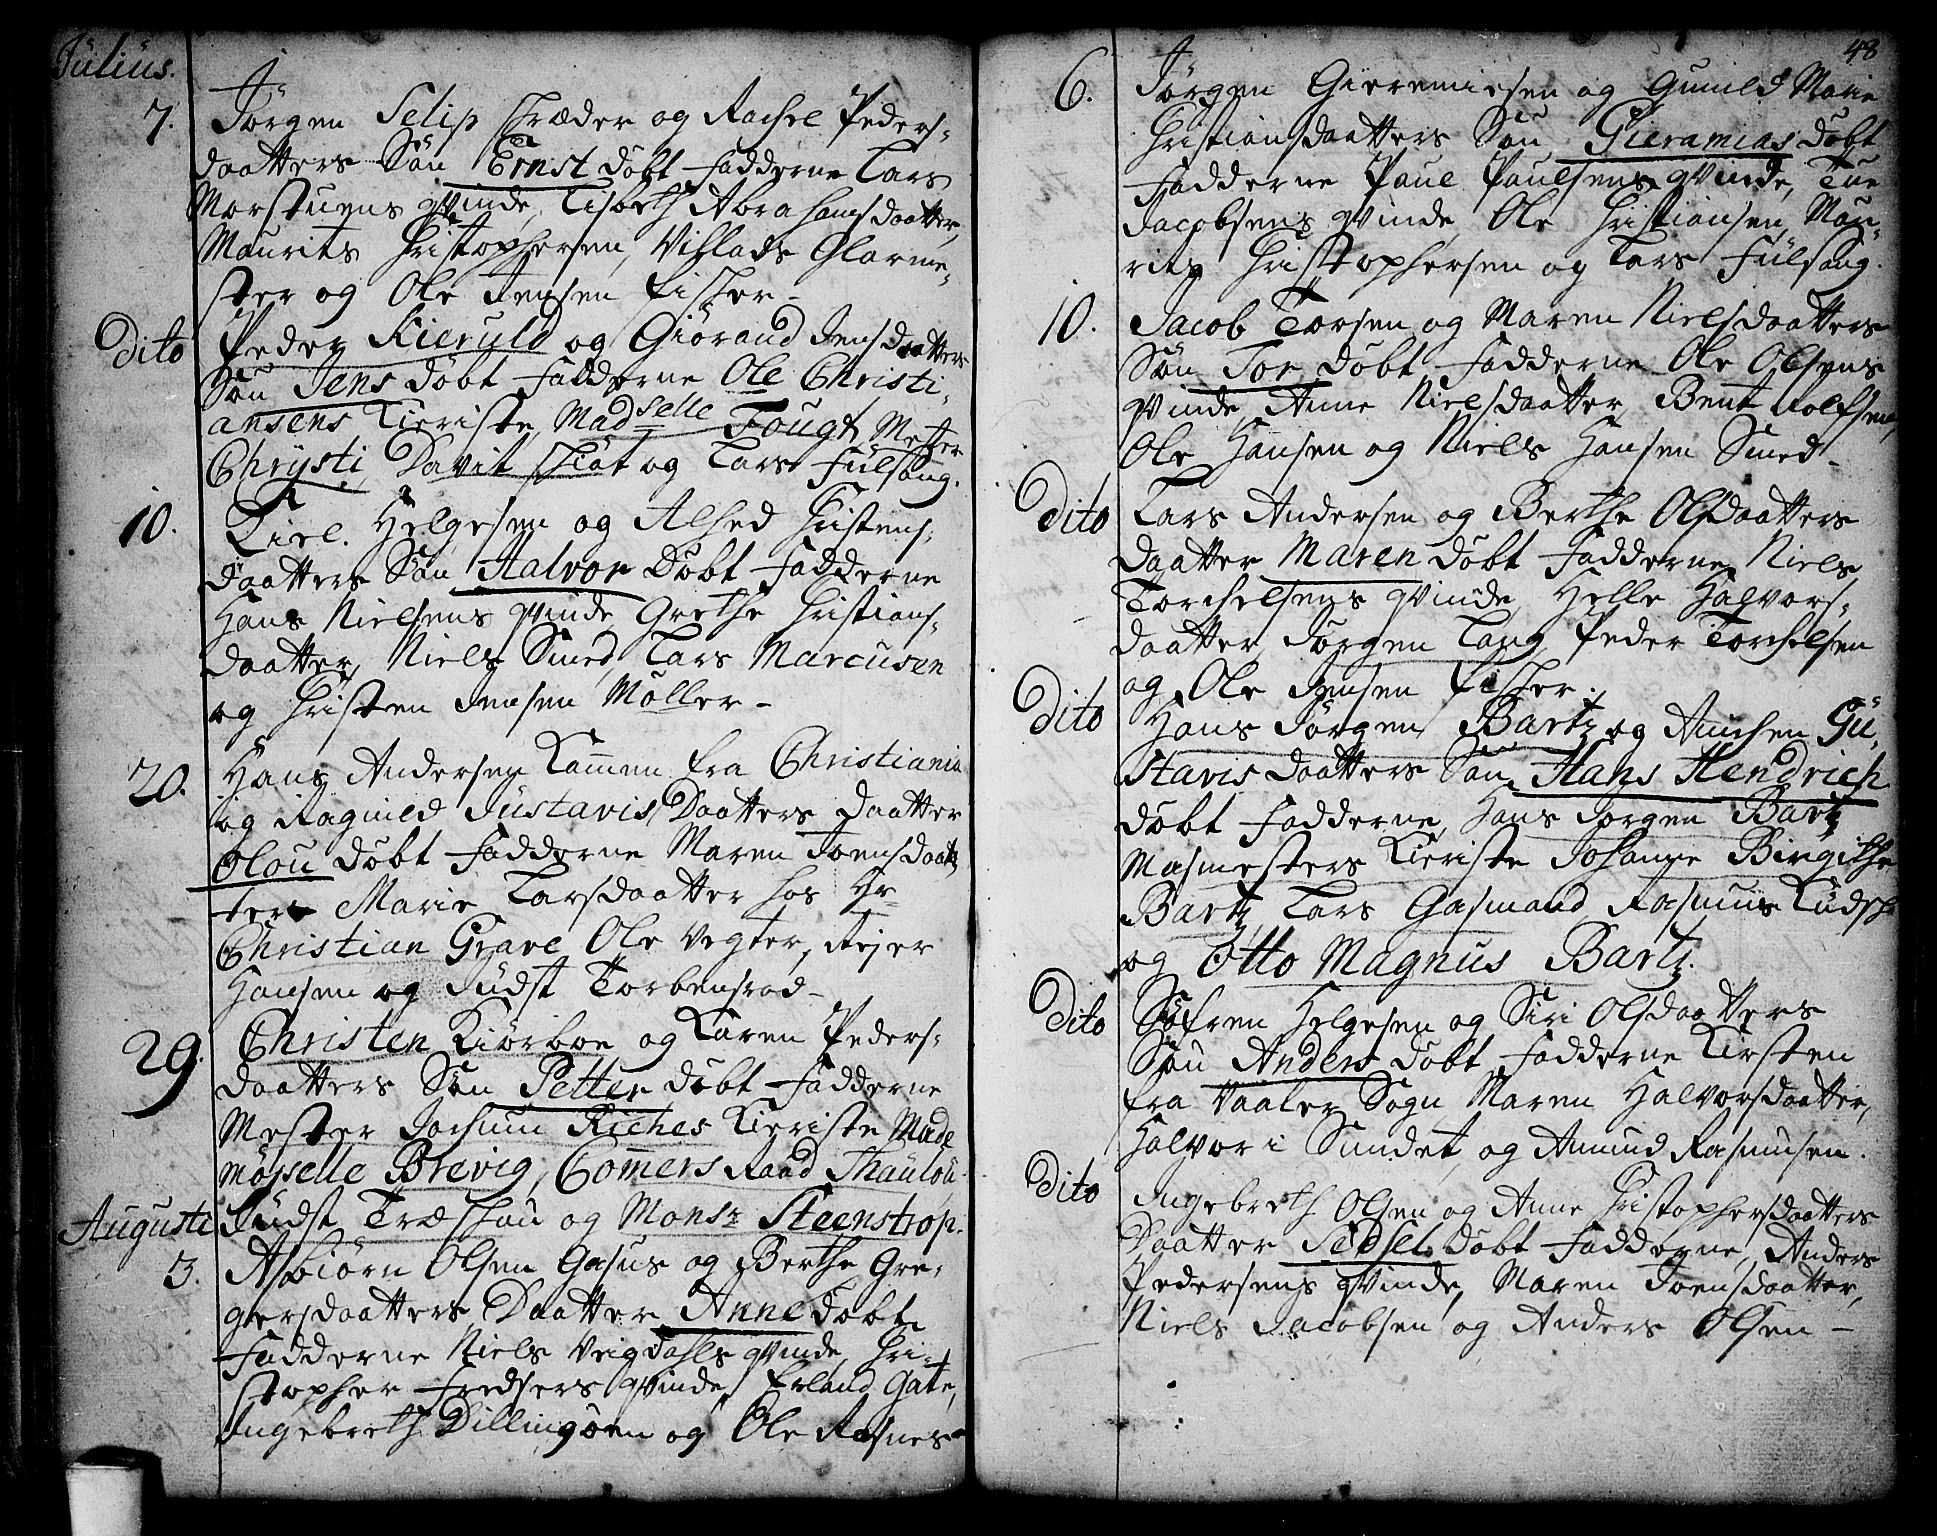 Julius.
7. Jörgen Selip Skræder og Rachel Peders-
daatters Sön Ernst döbt Fadderne Lars
Morstuens qvinde, Lisbeth Abrahamsdaatter,
Maurits Christophersen, Villads Glarme-
ster og Ole Jensen Fisker-
Dito Peder Kierulf og Giörand Jensdaatters
Sön Jens döbt Fadderne Ole Christi-
ansens Kieriste, Madselle Fougt, Mester
Chrÿsti, Davit Skiöt og Lars Fulsang.
10. Kiel. Helgesen og Alhed Christens-
daatters Sön Halvor Döbt Fadderne
Hans Nielsens qvinde Grethe Christians-
daatter, Niels Smed, Lars Marcusen
og Christen Jensen Möller-
20. Hans Andersen Kammen fra Christiania
og Ragnild Justavis Daatters Daatter
Olou döbt Fadderne Maren Joensdaat-
ter Marie Larsdaatter hos Hr
Christian Grave Ole Vegter, Rejer
Hansen og Judst Torbensrod-
29. Christen Kiörboe og Karen Peders-
daatters Sön Petter döbt Fadderne
Mester Jochum Riches Kieriste Made
Mojselle Brevig, Comers Raad Thaulou
Judst Træskou og Monsr Steenstrop.
Augusti
3. Asbiörn Olsen Gasus og Berthe Gre-
gersdaatters Daatter Anne döbt
Fadderne Niels Veigdahls qvinde, Chri-
stopher Fredsers qvinde, Erland Gate,
Ingebreth Dillingöen og Ole Rasnes-
48
6. Jörgen Gieremiesen og Gunild Marie
Christiansdaatters Sön Gieramias döbt
Fadderne Paul Paulsens qvinde, Tue
Jacobsens qvinde, Ole Christiansen, Mau-
rits Christophersen og Lars Fulsang.
10. Jacob Torsen og Maren Nielsdaatters
Sön Tor döbt Fadderne Ole Olsens
qvinde, Anne Nielsdaatter, Bent Rolfsen,
Ole Hansen og Niels Hansen Smed-
Dito Lars Andersen og Berthe Olsdaatters
Daatter Maren döbt Fadderne Niels
Torchelsens qvinde, Helle Halvors-
daatter, Jörgen Lang, Peder Torchelsen
og Ole Jensen Fisker.
Dito Hans Jörgen Bartz og Annchen Gu-
stavis daatters Sön Hans Hendrich
döbt Fadderne, Hans Jörgen Bartz
Masmesters Kieriste Johanne Birgithe
Bartz, Lars Gasmand Rasmus Kudsk
og Otto Magnus Bartz.
Dito Söfren Helgesen og Siri Olsdaatters
Sön Anders döbt Fadderne Kirsten
fra Vaaler Sogn, Maren Halvorsdaatter,
Halvor i Sundet og Amund Rasmusen.
Dito Ingebreth Olsen og Anne Christophersdaatters
Daatter Sedsel döbt Fadderne, Anders
Pedersens qvinde, Maren Joensdaatter,
Niels Jacobsen og Anders Olsen-